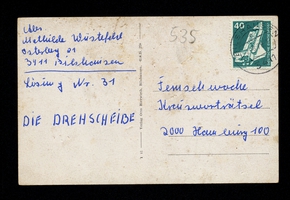 Abs.
Mathilde Wüstefeld
Osterberg 01
3411 Bilshausen
Lösung Nr. 31
DIE DREHSCHEIBE
535
40
Fernsehwoche
Kreuzworträtsel
2000 Hamburg 100